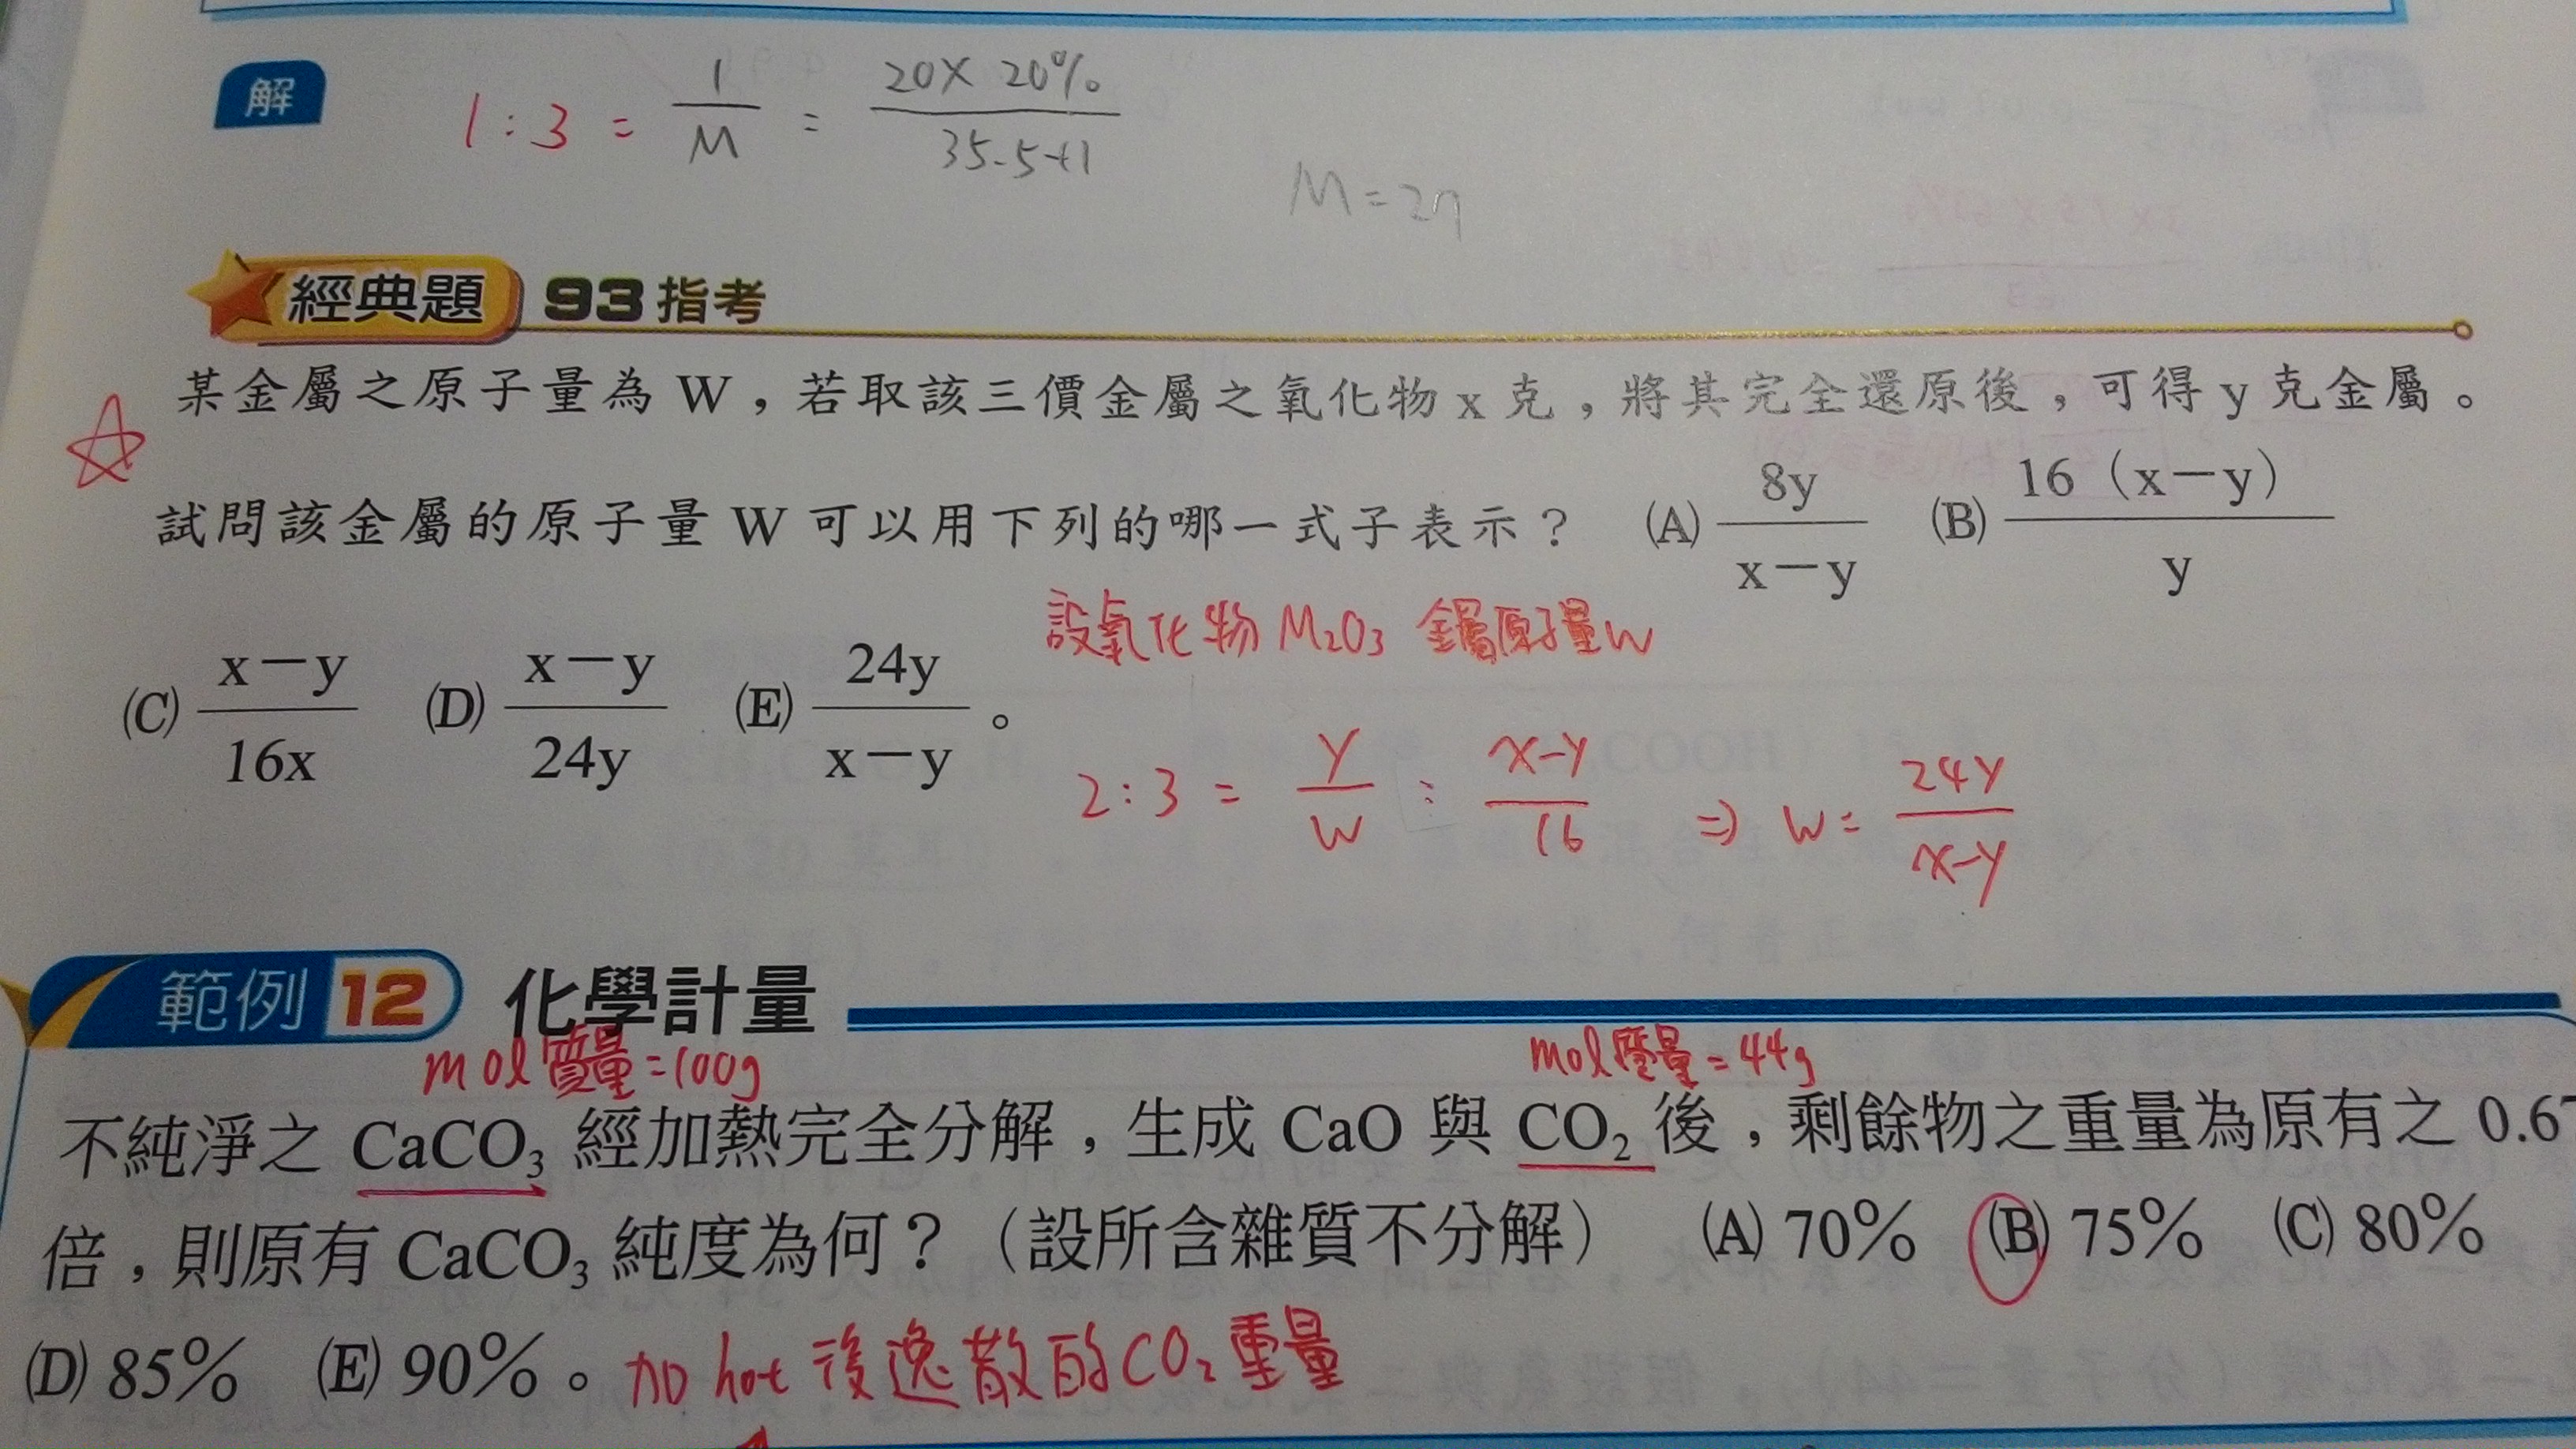 解
1 : 3 = 1/M = 20X 20%/35.5+1
M=27
經典題 93指考
某金屬之原子量為 W，若取該三價金屬之氧化物 x 克，將其完全還原後，可得 y 克金屬。
試問該金屬的原子量 W 可以用下列的哪一式子表示？ (A) 8y/x－y (B) 16（x－y）/y
設氧化物 M₂O₃ 金屬原子量W
(C) x－y/16x (D) x－y/24y (E) 24y/x－y 。
2 : 3 = Y/W : X-Y/16 ⇒ W = 24Y/X-Y
範例 12 化學計量
mol質量=100g mol質量=44g
不純淨之 CaCO₃ 經加熱完全分解，生成 CaO 與 CO₂ 後，剩餘物之重量為原有之 0.67
倍，則原有 CaCO₃ 純度為何？（設所含雜質不分解） (A) 70％ (B) 75％ (C) 80％
(D) 85％ (E) 90％。 加 hot 後逸散的CO₂重量